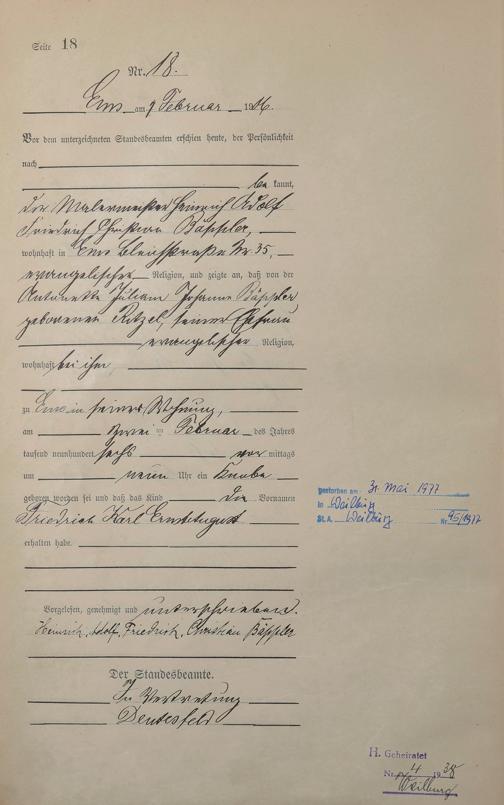 Seite 18
Nr. 18.
Ems am 9 Februar 1906.
Vor dem unterzeichneten Standesbeamten erschien heute, der Persönlichkeit
nach
be kannt,
der Malermeister Heinrich Adolf
Friedrich Christian Bäppler,
wohnhaft in Ems Bleichstraße Nr. 35,
evangelischer Religion, und zeigte an, daß von der
Antonette Juliane Johanna Bäppler
geborenen Ritzel, seiner Ehefrau
evangelischer Religion,
wohnhaft bei ihm,
zu Ems in seiner Wohnung,
am zwei ten Februar des Jahres
tausend neunhundert sechs vor mittags
um neun Uhr ein Knabe
geboren worden sei und daß das Kind die Vornamen
Friedrich Karl Ernst August
erhalten habe.
Vorgelesen, genehmigt und unterschrieben.
Heinrich, Adolf, Friedrich, Christian Bäppler
Der Standesbeamte.
In Vertretung
gestorben am 31. Mai 1977
in Weilburg
St.A. Weilburg Nr. 95/1977
H. Geheiratet
Nr. 4 1938
Weilburg